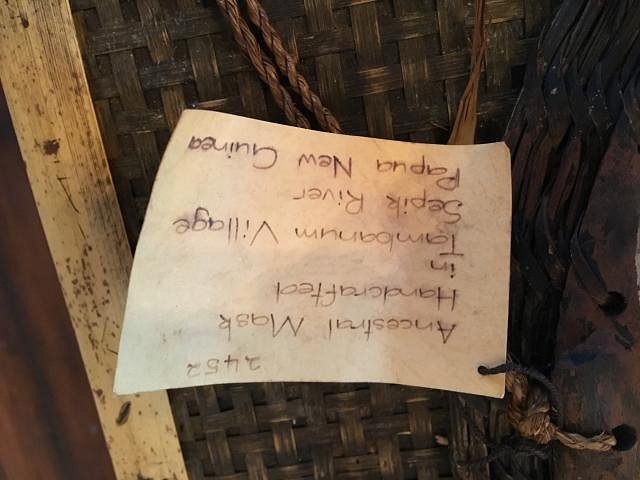 2452
Ancestral Mask
Handcrafted
in
Tambanum Village
Sepik River
Papua New Guinea